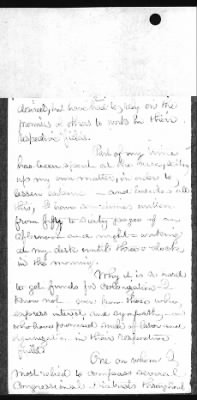 desired, but have had to rely on the
promises of others to work in their
respective fields.
Part of my time
has been spent at the
up my own matter, in order to
lessen expense — and besides all
this, I have sometimes written
from fifty to sixty pages of an
afternoon and night — working
at my desk until three o'clock
in the morning.
Why it is so hard
to get funds for I
know not even from those who
express interest and sympathy — or
who have promised much of labor and
in their respective
fields.
One on whom I
most relied to canvass several
Congressional Districts throughout